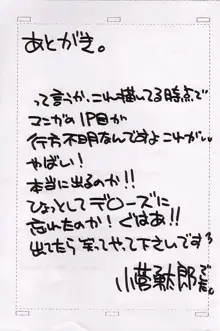 あとがき。
って言うか、これ描いてる時点で
マンガの1P目が
行方不明なんですよコレが。
やばい!
本当に出るのか!!
ひょっとしてデニーズに
忘れたのか!ぐはあ!!
出てたら笑ってやって下さいです?
小菅勇太郎でした。